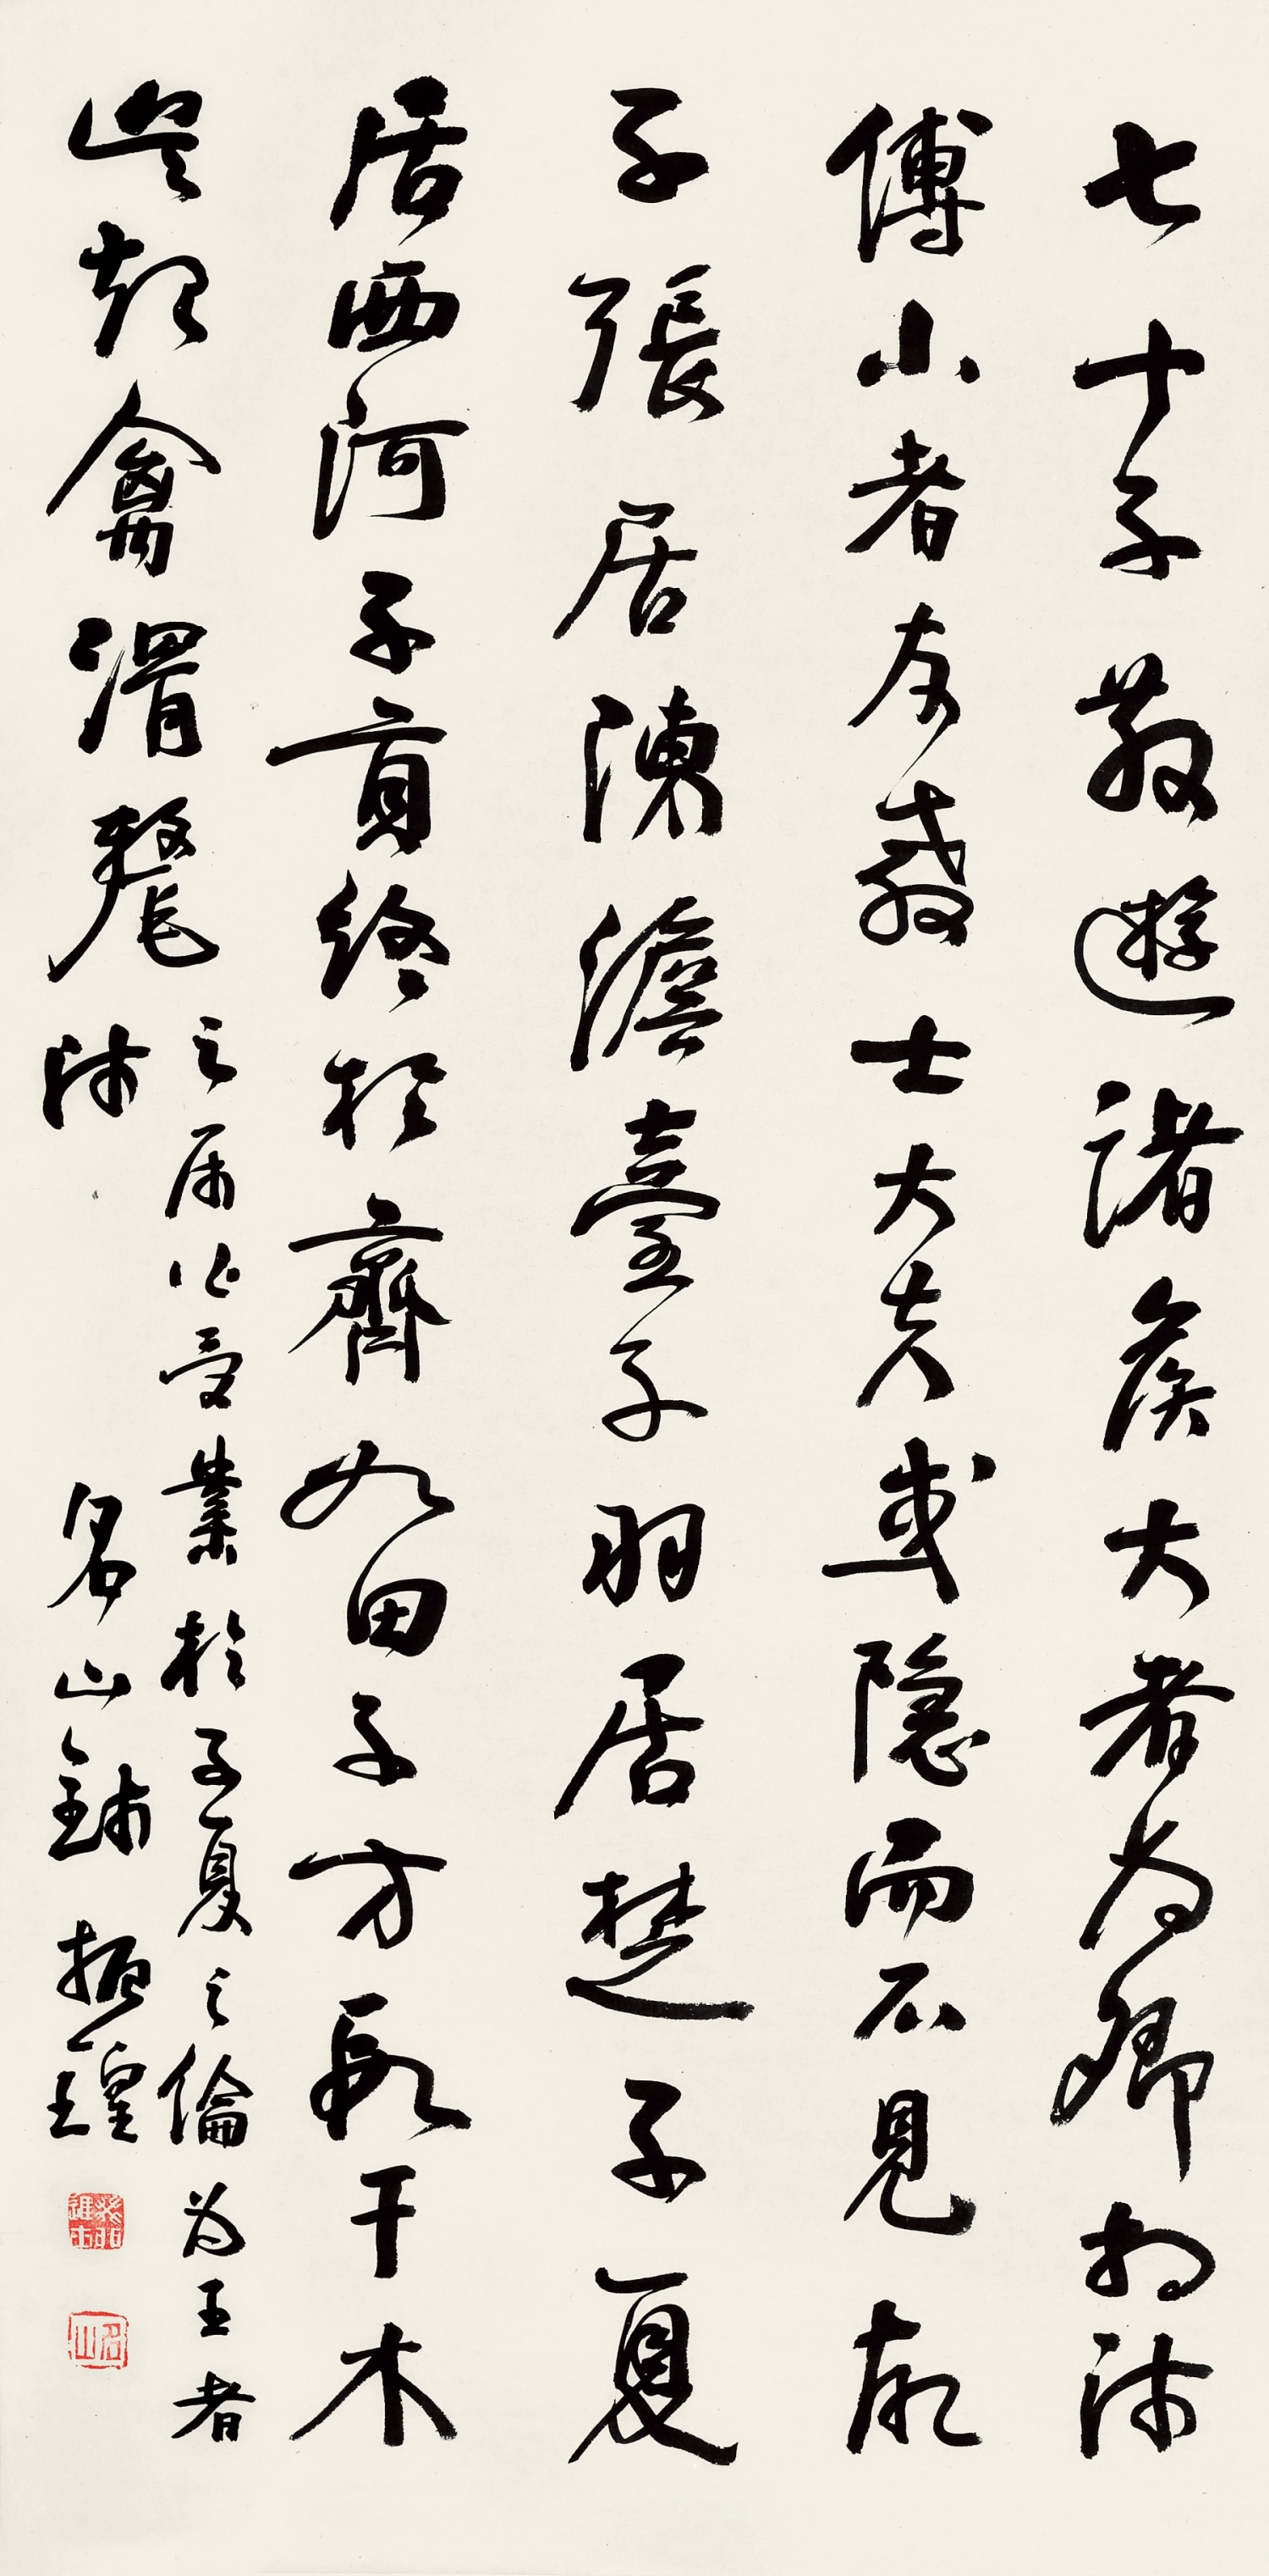 七十子散遊諸侯大者為卿相師
傅小者友教士大夫或隱而不見故
子張居陳澹臺子羽居楚子夏
居西河子貢終於齊如田子方段干木
吳起禽滑氂
之屬皆受業於子夏之倫為王者
師
名山錢振鍠
癸卯進士
名山